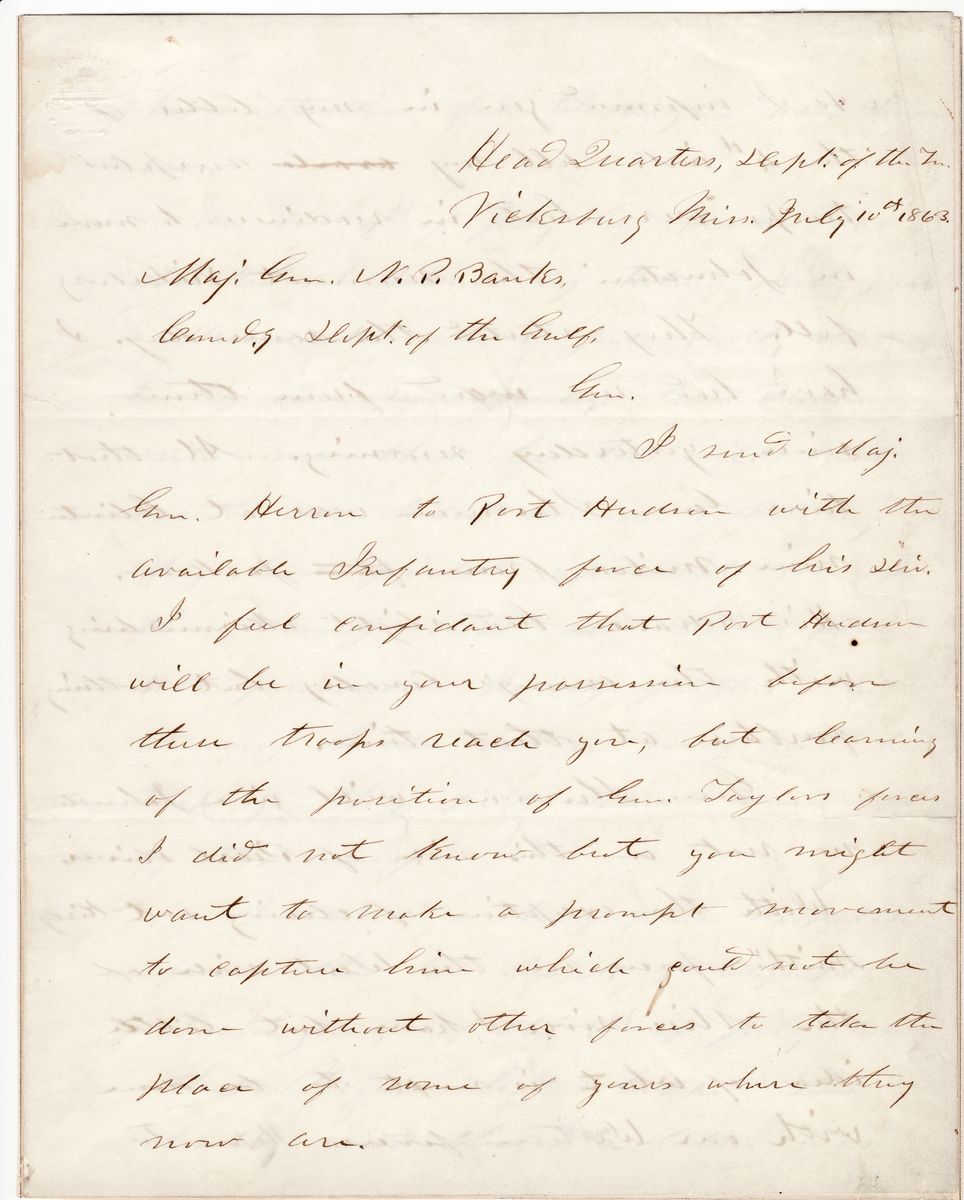 Head Quarters, Dept. of the Tn.
Vicksburg Miss. July 10th 1863.
Maj. Gen. N. P. Banks,
Comd.g Dept. of the Gulf,
Gen.
I send Maj.
Gen. Herron to Port Hudson with the
available Infantry force of his Div.
I feel confidant that Port Hudson
will be in your possession before
these troops reach you, but learning
of the position of Gen. Taylors forces
I did not know but you might
want to make a prompt movement
to capture him which could not be
done without other forces to take the
place of some of yours where they
now are.